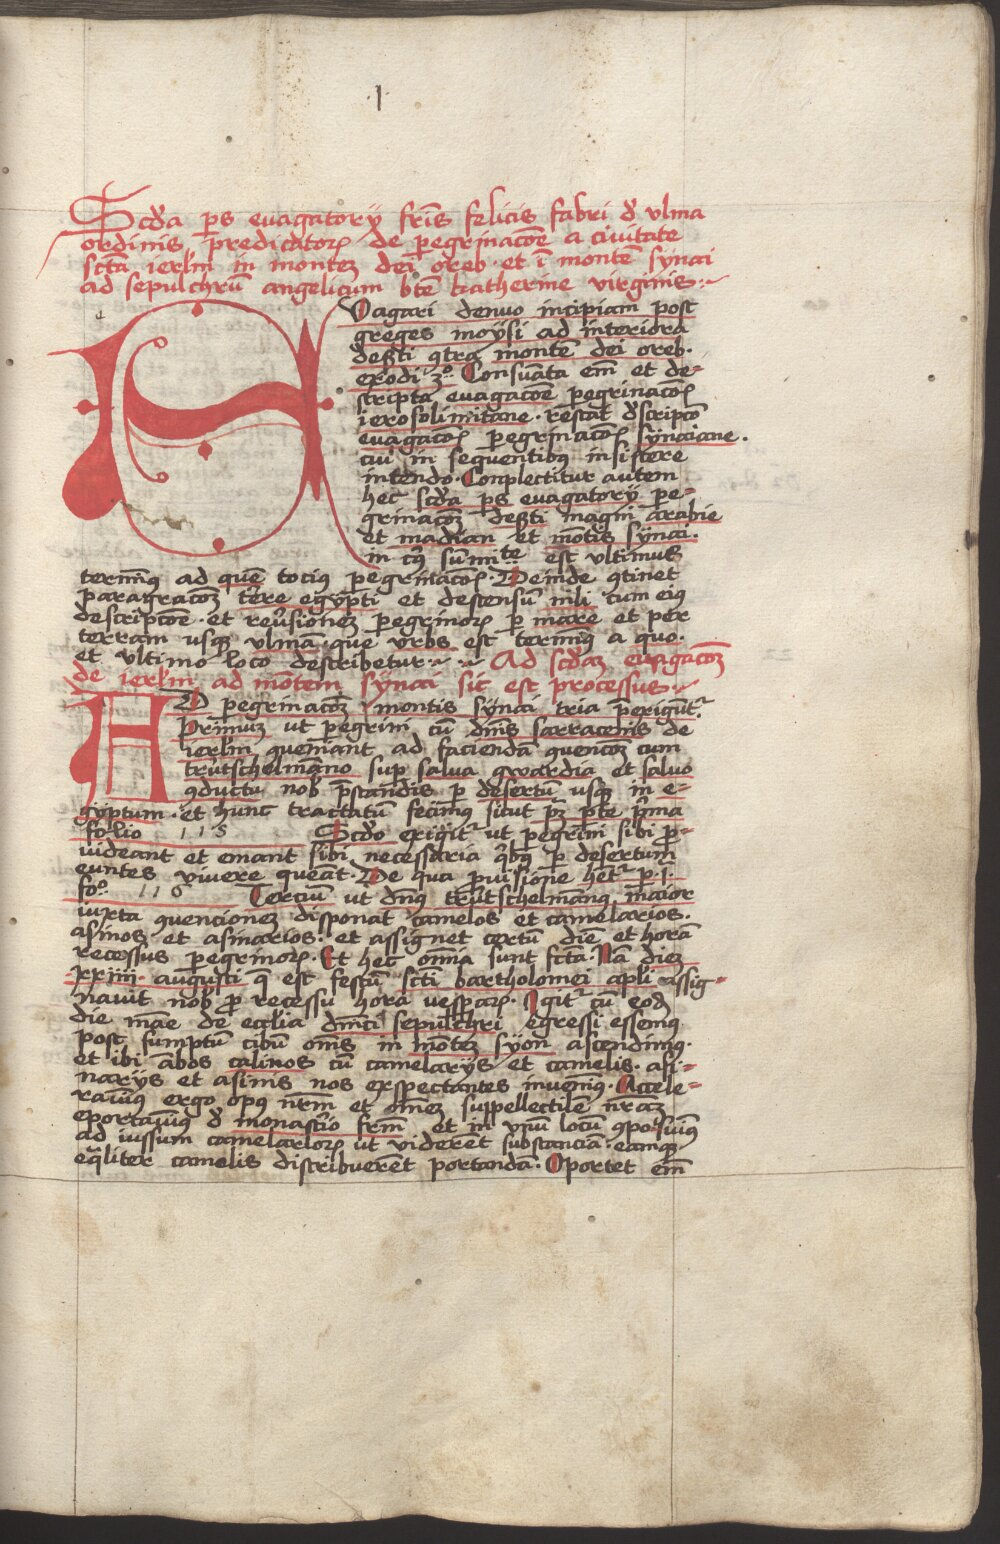 1
Scđa ps evagatorÿ fris felicis fabri đ ulma
ordinis predicatoꝝ de pegrinacõe a civitate
sctã ierlm in montem dei oreb · et ĩ montẽ synai
ad sepulchrũ angelicum btẽ katherine virginis
Evagari denuo incipiam post
greges moÿsi ad interiora
deßti ꝯtra montẽ dei oreb ·
exodi 3º · Consũata em̃ et de-
scripta evagacõe pegrinacõis
ierosolimitane · restat đscriptõ
evagacõis pegrinacõis sÿnaiane ·
cui in sequentibus insistere
intendo · Conplectitur autem
hec scđa ps evagatorÿ pe-
grinacõem deßti magni arabie
et madian et mõtis sÿnai ·
in cuius sũmitate est ultimus
terminus ad quẽ tocius pegrinacõis · Deinde ꝯtinet
paragracõem terre egypti et descensũ nili cum eius
descriptõe · et reversionem pegrinoꝝ p mare et per
terram usque ulmã · que urbs est terminus a quo ·
et ultimo loco describetur · Ad scđam evagacõem
de ierlm ad mõtem sÿnai sic est processus
AD pegrinacõem montis sÿnai tria perigũt
Primum ut pegrini cũ dnis sarracenis de
ierlm ꝯveniant ad faciendã ꝯvencõem cum
trutschelmãno sup salva gwardia et salvo
ꝯductu nob pstandis p desertũ usque in e-
gÿptum · et hunc tractatũ fecimus sicut pꝫ pte prima
folio 115 Scđo exigitur ut pegrini sibi p-
videant et emant sibi necessaria qbus p desertum
euntes vivere queãt · De qua pvisione hetur p · i ·
foº · 116 Tercium ut dnus trutschelmãnus maior
iuxta ꝯvencionem disponat camelos et camelarios ·
asinos · et asinarios · et assignet certũ diẽ et horã
recessus pegrinoꝝ · Et hec omnia sunt fctã · Nã diem
xxiiii · augusti q est festũ scti bartholomei apli assig-
navit nob p recessu horã vesparum · Igitur cũ eodem
die mãe de ecclia dmci sepulchri egressi essemus
post sumptũ cibũ omnes in mõtem sÿon ascendimus ·
et ibi ãbos calinos cũ camelarÿs et camelis · asi-
narÿs et asinis nos exspectantes invenimus · Accele-
ravimus ergo opus nrm et omnem suppellectilẽ nram
eportavimus đ monastio frm et in unũ locũ ꝯposuimus
ad iussum camelarioꝝ ut viderẽt substancia · eamque
eqliter camelis distribuerẽt portandã · Oportet em̃